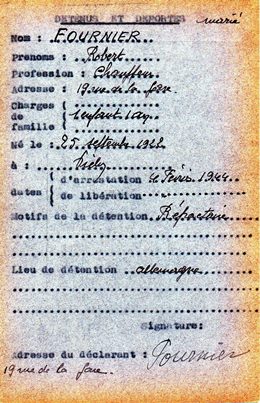 DETENUS ET DEPORTES
marié
Nom : FOURNIER
Prenoms : Robert
Profession : Chauffeur
Adresse : 19 rue de la
Charges
de 1 enfant 1 an
famille
Né le : 25 septembre 1922
à : Vichy
d'arrestation le Février 1944
dates
de libération
Motifs de la détention Réfractaire
Lieu de détention allemagne
Signature:
Adresse du déclarant : Fournier
19 rue de la